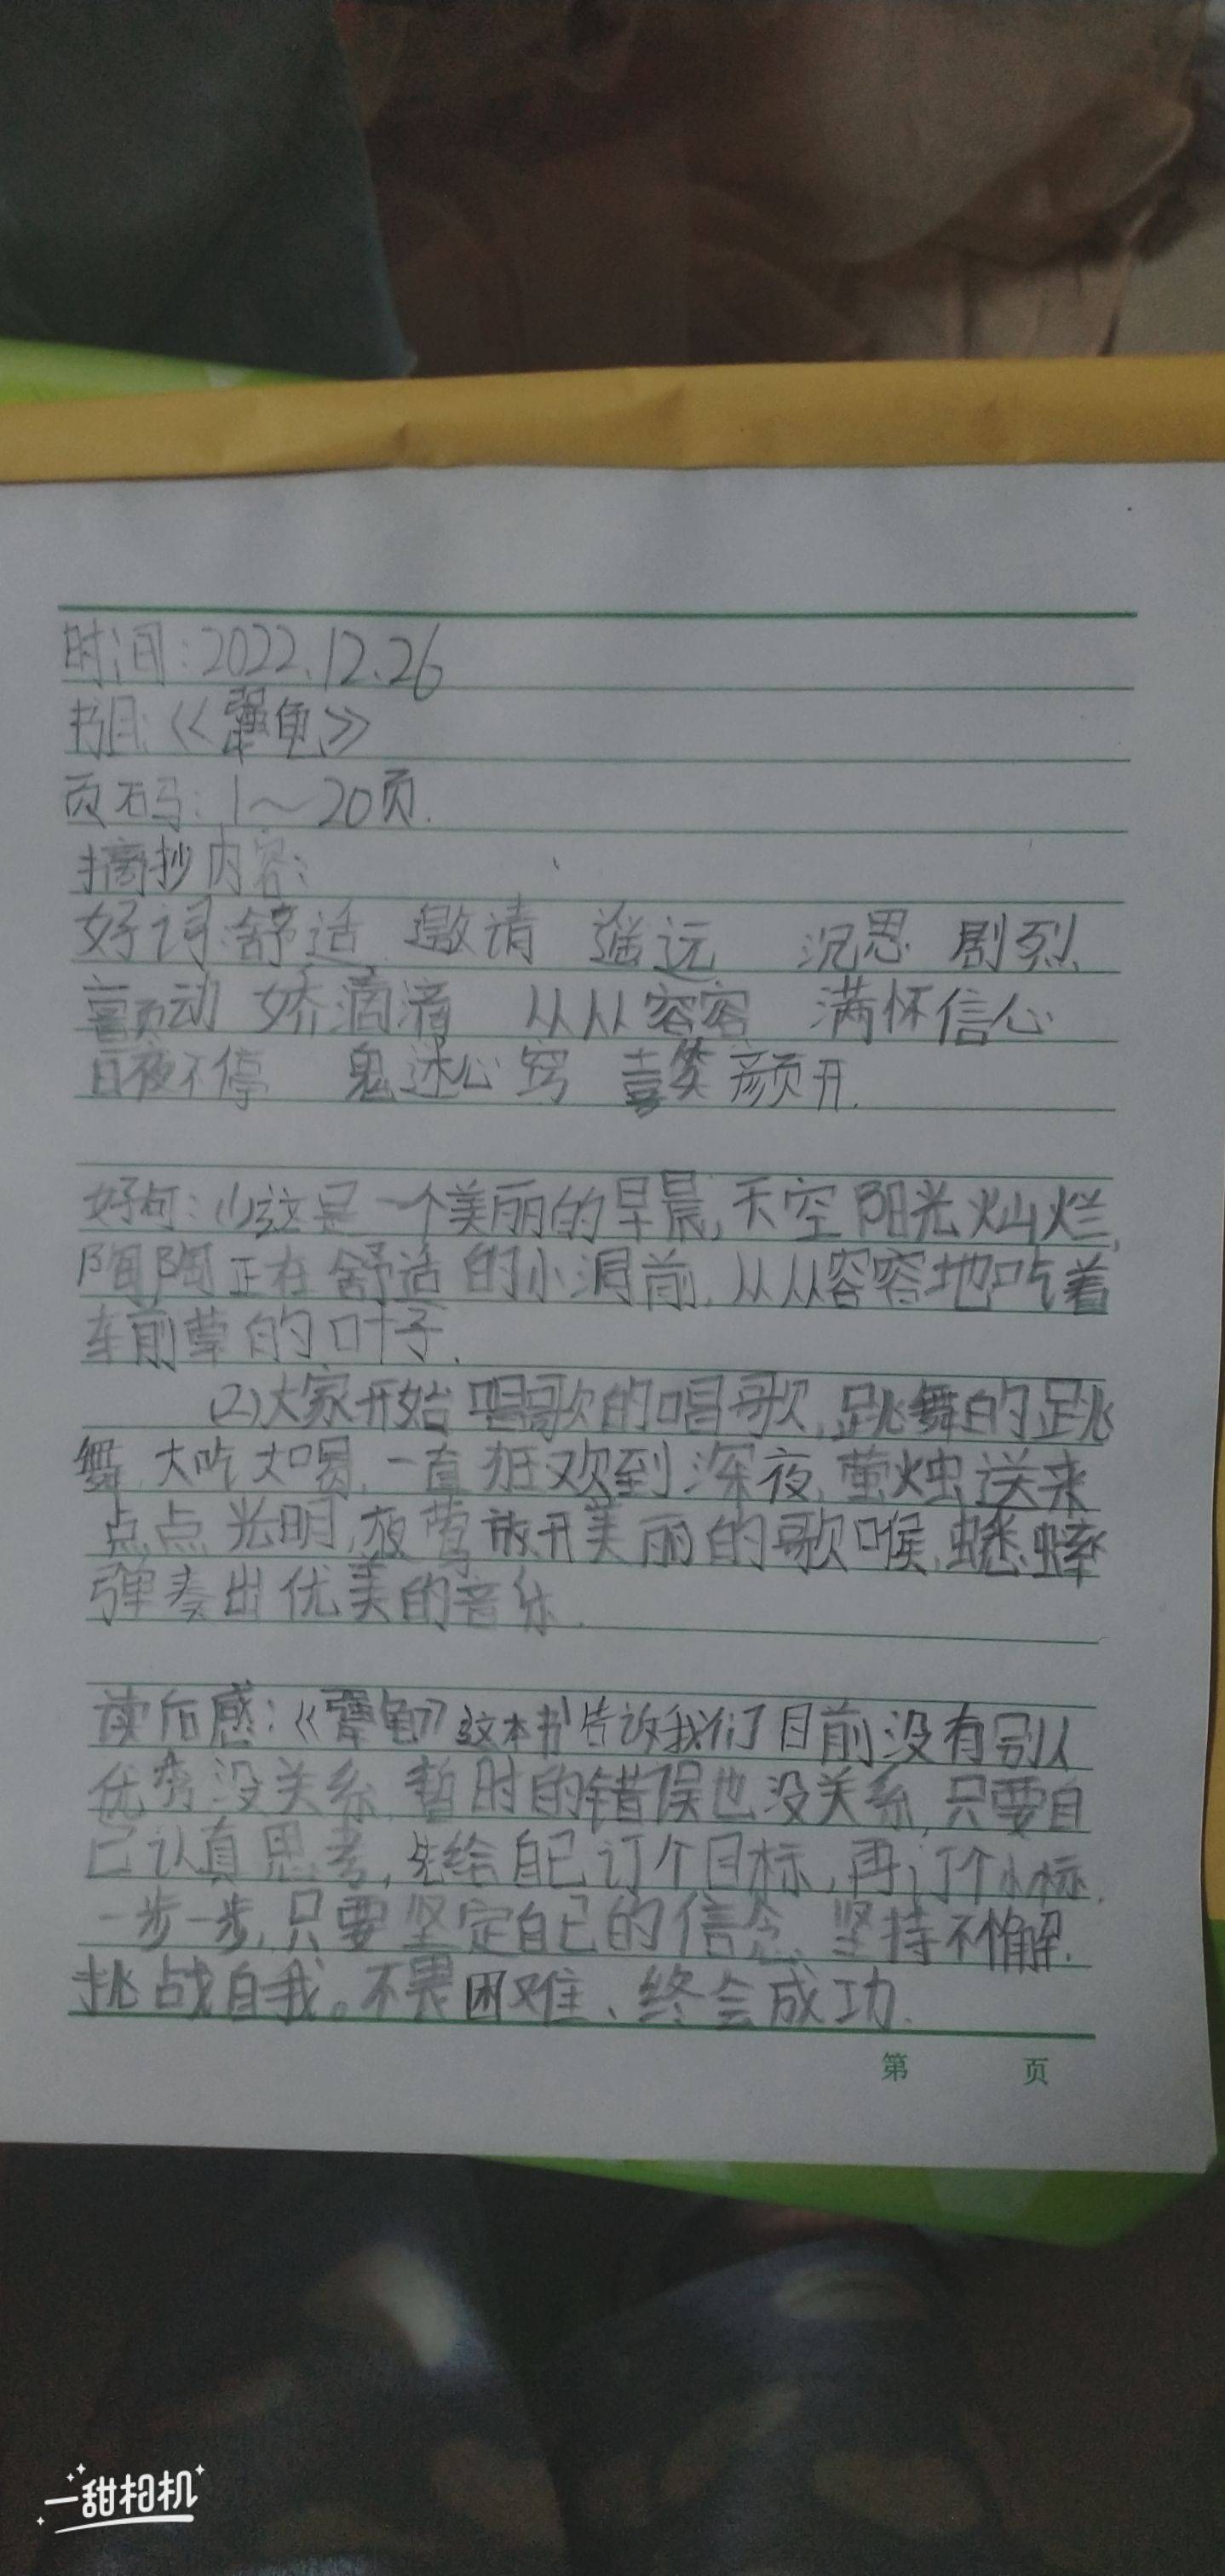 时间:2022.12.26
书目:《犟龟》
页码:1～20页.
摘抄内容:
好词:舒适 邀请 遥远 沉思 剧烈
颤动 娇滴滴 从从容容 满怀信心
日夜不停 鬼迷心窍 喜笑颜开.
好句:(1)这是一个美丽的早晨,天空阳光灿烂,
陶陶正在舒适的小洞前,从从容容地吃着
车前草的叶子.
(2)大家开始唱歌的唱歌,跳舞的跳
舞,大吃大喝,一直狂欢到深夜,萤烛送来
点点光明,夜莺放开美丽的歌喉,蟋蟀
弹奏出优美的音乐.
读后感:《犟龟》这本书告诉我们目前没有别人
优秀没关系,暂时的错误也没关系,只要自
己认真思考,先给自己订个目标,再订个小标,
一步一步,只要坚定自己的信念、坚持不懈,
挑战自我。不畏困难、终会成功.
第 页
一甜相机